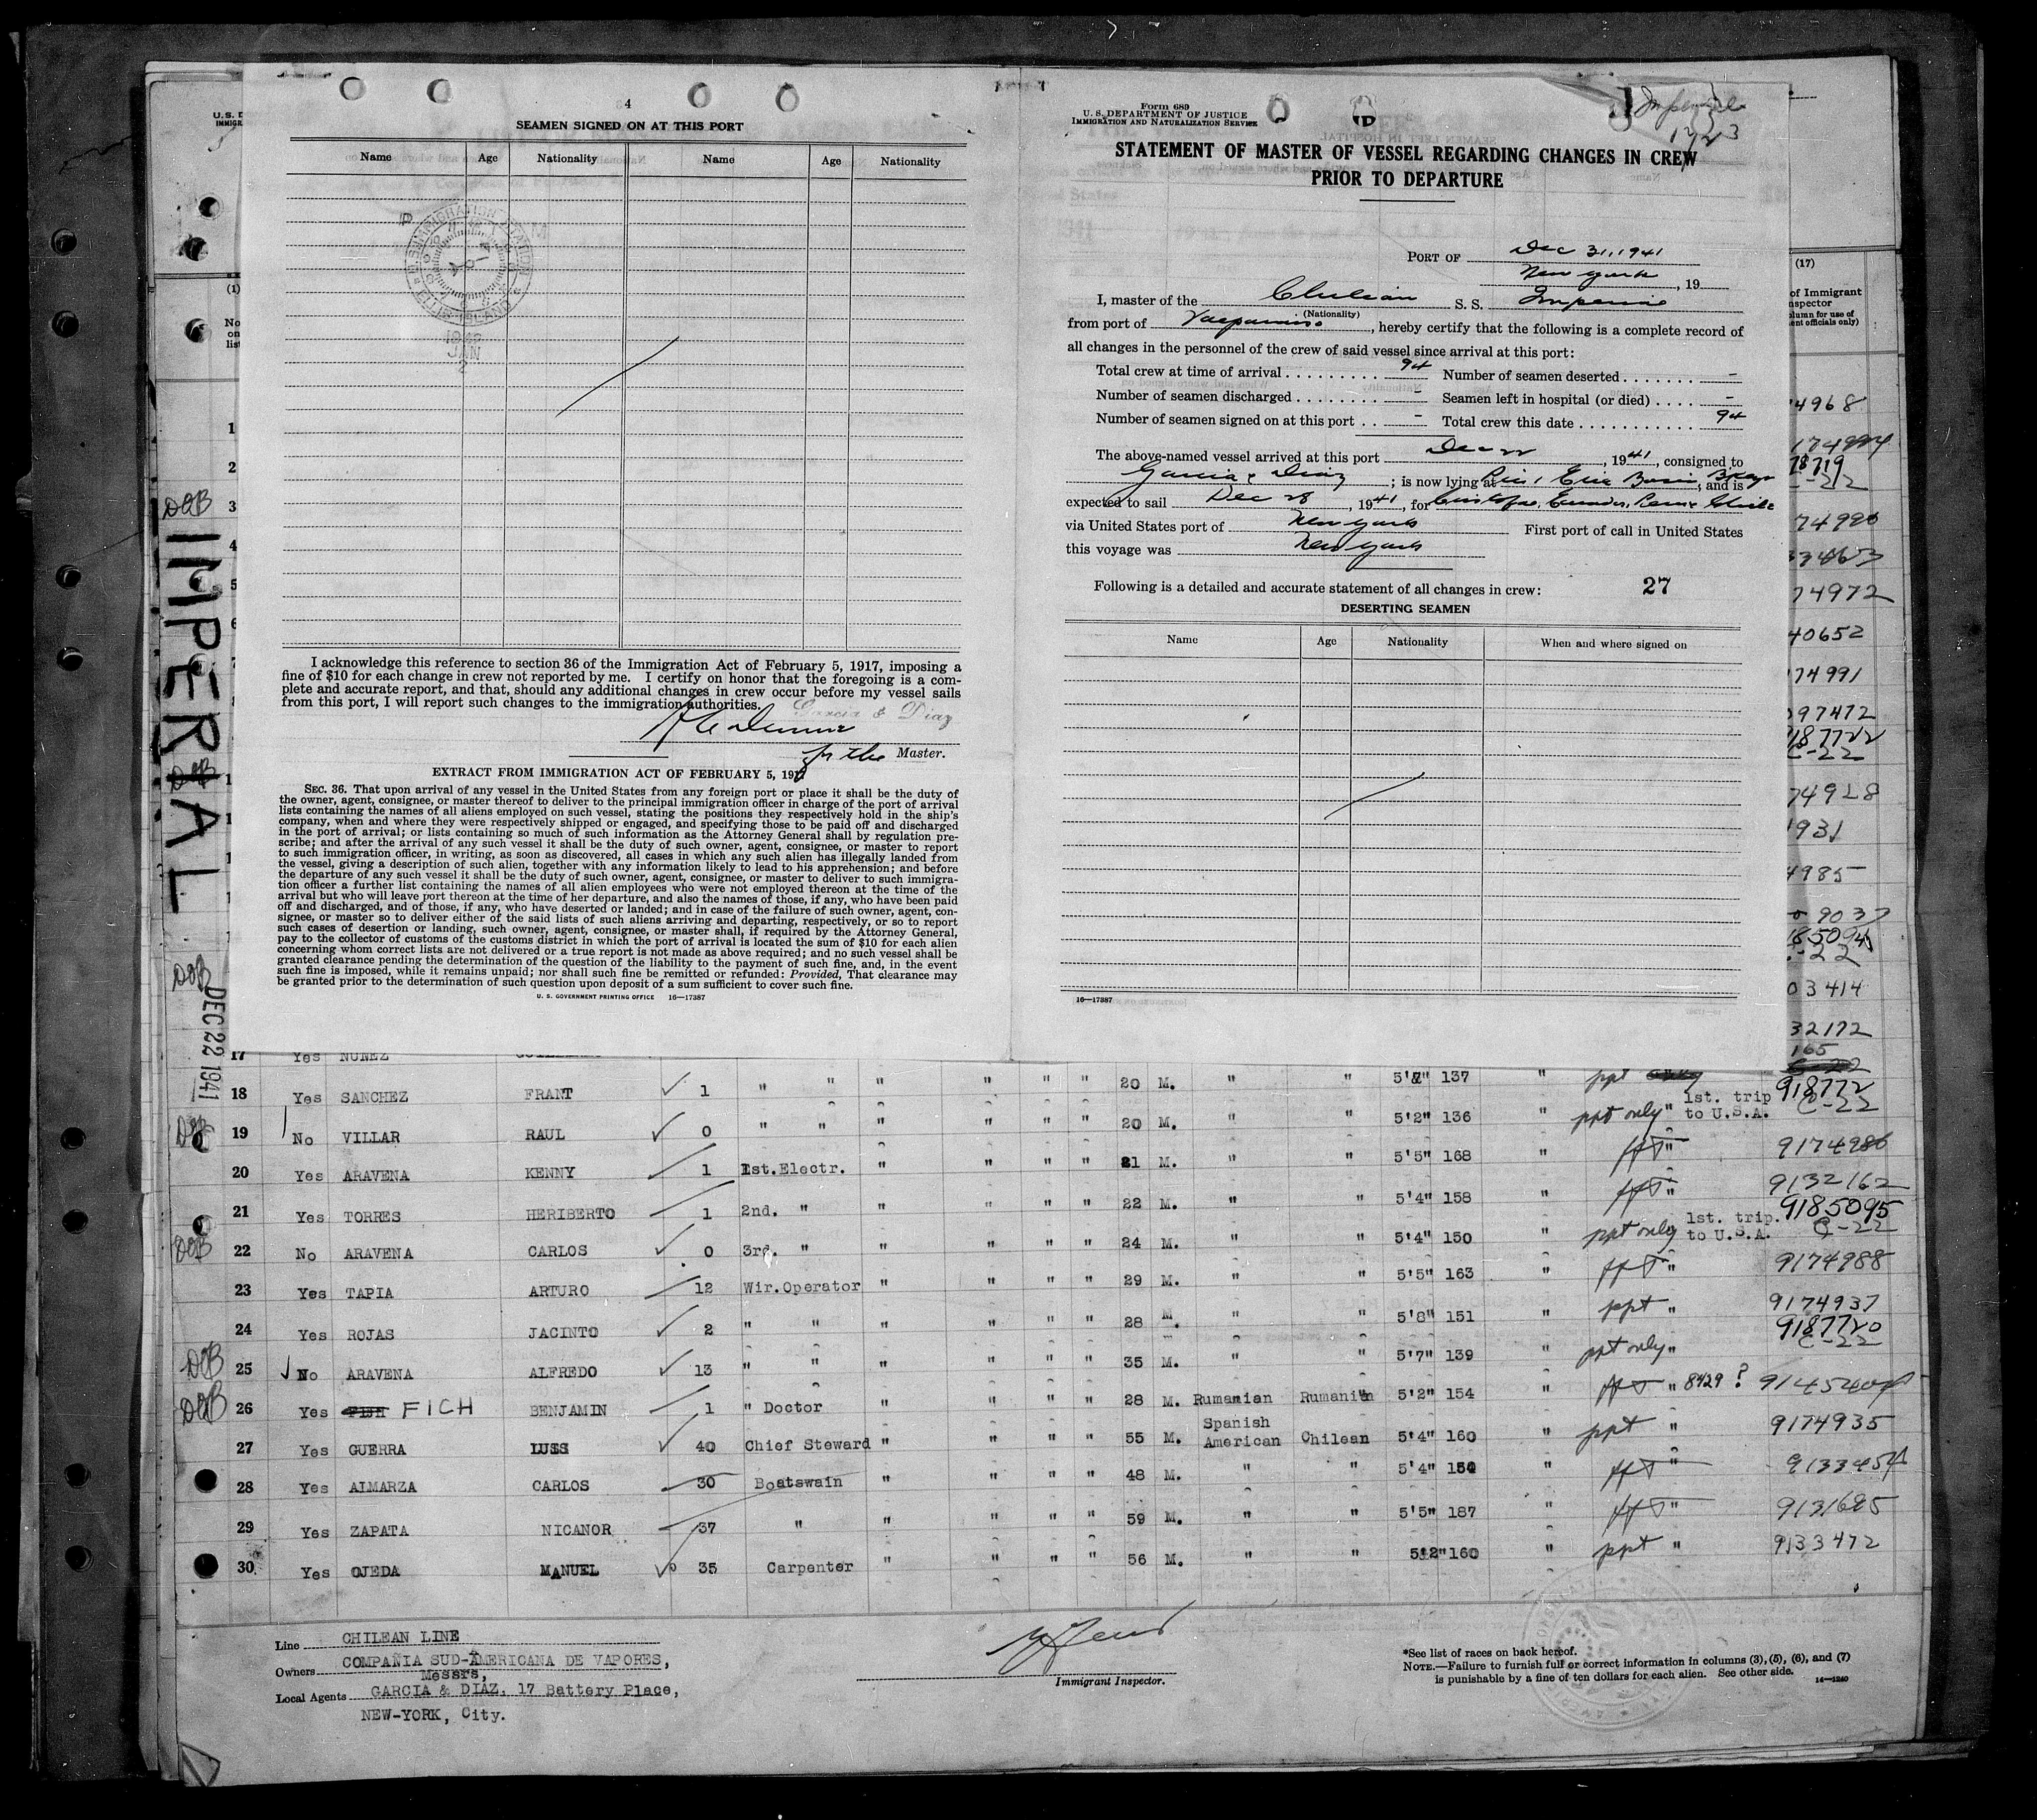 4
SEAMEN SIGNED ON AT THIS PORT
Name Age Nationality Name Age Nationality
IMMIGRATION STATION
ELLIS ISLAND
1942
JAN
2
I acknowledge this reference to section 36 of the Immigration Act of February 5, 1917, imposing a
fine of $10 for each change in crew not reported by me. I certify on honor that the foregoing is a com-
plete and accurate report, and that, should any additional changes in crew occur before my vessel sails
from this port, I will report such changes to the immigration authorities.
Garcia & Diaz
for the Master.
EXTRACT FROM IMMIGRATION ACT OF FEBRUARY 5, 1917
SEC. 36. That upon arrival of any vessel in the United States from any foreign port or place it shall be the duty of
the owner, agent, consignee, or master thereof to deliver to the principal immigration officer in charge of the port of arrival
lists containing the names of all aliens employed on such vessel, stating the positions they respectively hold in the ship's
company, when and where they were respectively shipped or engaged, and specifying those to be paid off and discharged
in the port of arrival; or lists containing so much of such information as the Attorney General shall by regulation pre-
scribe; and after the arrival of any such vessel it shall be the duty of such owner, agent, consignee, or master to report
to such immigration officer, in writing, as soon as discovered, all cases in which any such alien has illegally landed from
the vessel, giving a description of such alien, together with any information likely to lead to his apprehension; and before
the departure of any such vessel it shall be the duty of such owner, agent, consignee, or master to deliver to such immigra-
tion officer a further list containing the names of all alien employees who were not employed thereon at the time of the
arrival but who will leave port thereon at the time of her departure, and also the names of those, if any, who have been paid
off and discharged, and of those, if any, who have deserted or landed; and in case of the failure of such owner, agent, con-
signee, or master so to deliver either of the said lists of such aliens arriving and departing, respectively, or so to report
such cases of desertion or landing, such owner, agent, consignee, or master shall, if required by the Attorney General,
pay to the collector of customs of the customs district in which the port of arrival is located the sum of $10 for each alien
concerning whom correct lists are not delivered or a true report is not made as above required; and no such vessel shall be
granted clearance pending the determination of the question of the liability to the payment of such fine, and, in the event
such fine is imposed, while it remains unpaid; nor shall such fine be remitted or refunded: Provided, That clearance may
be granted prior to the determination of such question upon deposit of a sum sufficient to cover such fine.
U. S. GOVERNMENT PRINTING OFFICE 16—17387
Form 689
U. S. DEPARTMENT OF JUSTICE
IMMIGRATION AND NATURALIZATION SERVICE
Imperial
STATEMENT OF MASTER OF VESSEL REGARDING CHANGES IN CREW
PRIOR TO DEPARTURE
PORT OF Dec 31, 1941
New York, 19
I, master of the Chilean S. S. Imperial
(Nationality)
from port of Valparaiso, hereby certify that the following is a complete record of
all changes in the personnel of the crew of said vessel since arrival at this port:
Total crew at time of arrival 94 Number of seamen deserted -
Number of seamen discharged - Seamen left in hospital (or died) -
Number of seamen signed on at this port - Total crew this date 94
The above-named vessel arrived at this port Dec 22, 1941, consigned to
Garcia & Diaz; is now lying at Pier 1 Erie Basin Bklyn, and is
expected to sail Dec 28, 1941, for
via United States port of New York First port of call in United States
this voyage was New York
Following is a detailed and accurate statement of all changes in crew: 27
DESERTING SEAMEN
Name Age Nationality When and where signed on
16—17387
IMPERIAL
DEC 22 1941
(1)
(17)
17 Yes NUNEZ
18 Yes SANCHEZ FRANT 1 " " " " " " 20 M. " " 5'7" 137 " ppt 918772 C-22
19 No VILLAR RAUL 0 " " " " " " 20 M. " " 5'2" 136 " ppt only " 1st. trip to U.S.A.
20 Yes ARAVENA KENNY 1 1st.Electr. " " " " 21 M. " " 5'5" 168 " " 9174986
21 Yes TORRES HERIBERTO 1 2nd. " " " " " 22 M. " " 5'4" 158 " " 9132162
22 No ARAVENA CARLOS 0 3rd. " " " " " 24 M. " " 5'4" 150 " ppt only 1st. trip. to U.S.A. 9185095 C-22
23 Yes TAPIA ARTURO 12 Wir.Operator " " " " 29 M. " " 5'5" 163 " " 9174988
24 Yes ROJAS JACINTO 2 " " " " " " 28 M. " " 5'8" 151 " ppt " 9174937
25 No ARAVENA ALFREDO 13 " " " " " " 35 M. " " 5'7" 139 " ppt only " 9187720 C-22
26 Yes FICH BENJAMIN 1 " Doctor " " " 28 M. Rumanian Rumanian 5'2" 154 " " 8429 ?
27 Yes GUERRA LUIS 40 Chief Steward " " " " 55 M. Spanish American Chilean 5'4" 160 " ppt " 9174935
28 Yes ALMARZA CARLOS 30 Boatswain " " " " 48 M. " " 5'4" 150 " " 9133454
29 Yes ZAPATA NICANOR 37 " " " " " 59 M. " " 5'5" 187 " " 9131685
30 Yes OJEDA MANUEL 35 Carpenter " " " " 56 M. " " 5'2" 160 " ppt " 9133472
Line CHILEAN LINE
Owners COMPAÑIA SUD-AMERICANA DE VAPORES,
Messrs,
Local Agents GARCIA & DIAZ, 17 Battery Place,
NEW-YORK, City.
Immigrant Inspector.
*See list of races on back hereof.
NOTE.—Failure to furnish full or correct information in columns (3), (5), (6), and (7)
is punishable by a fine of ten dollars for each alien. See other side. 14—1240